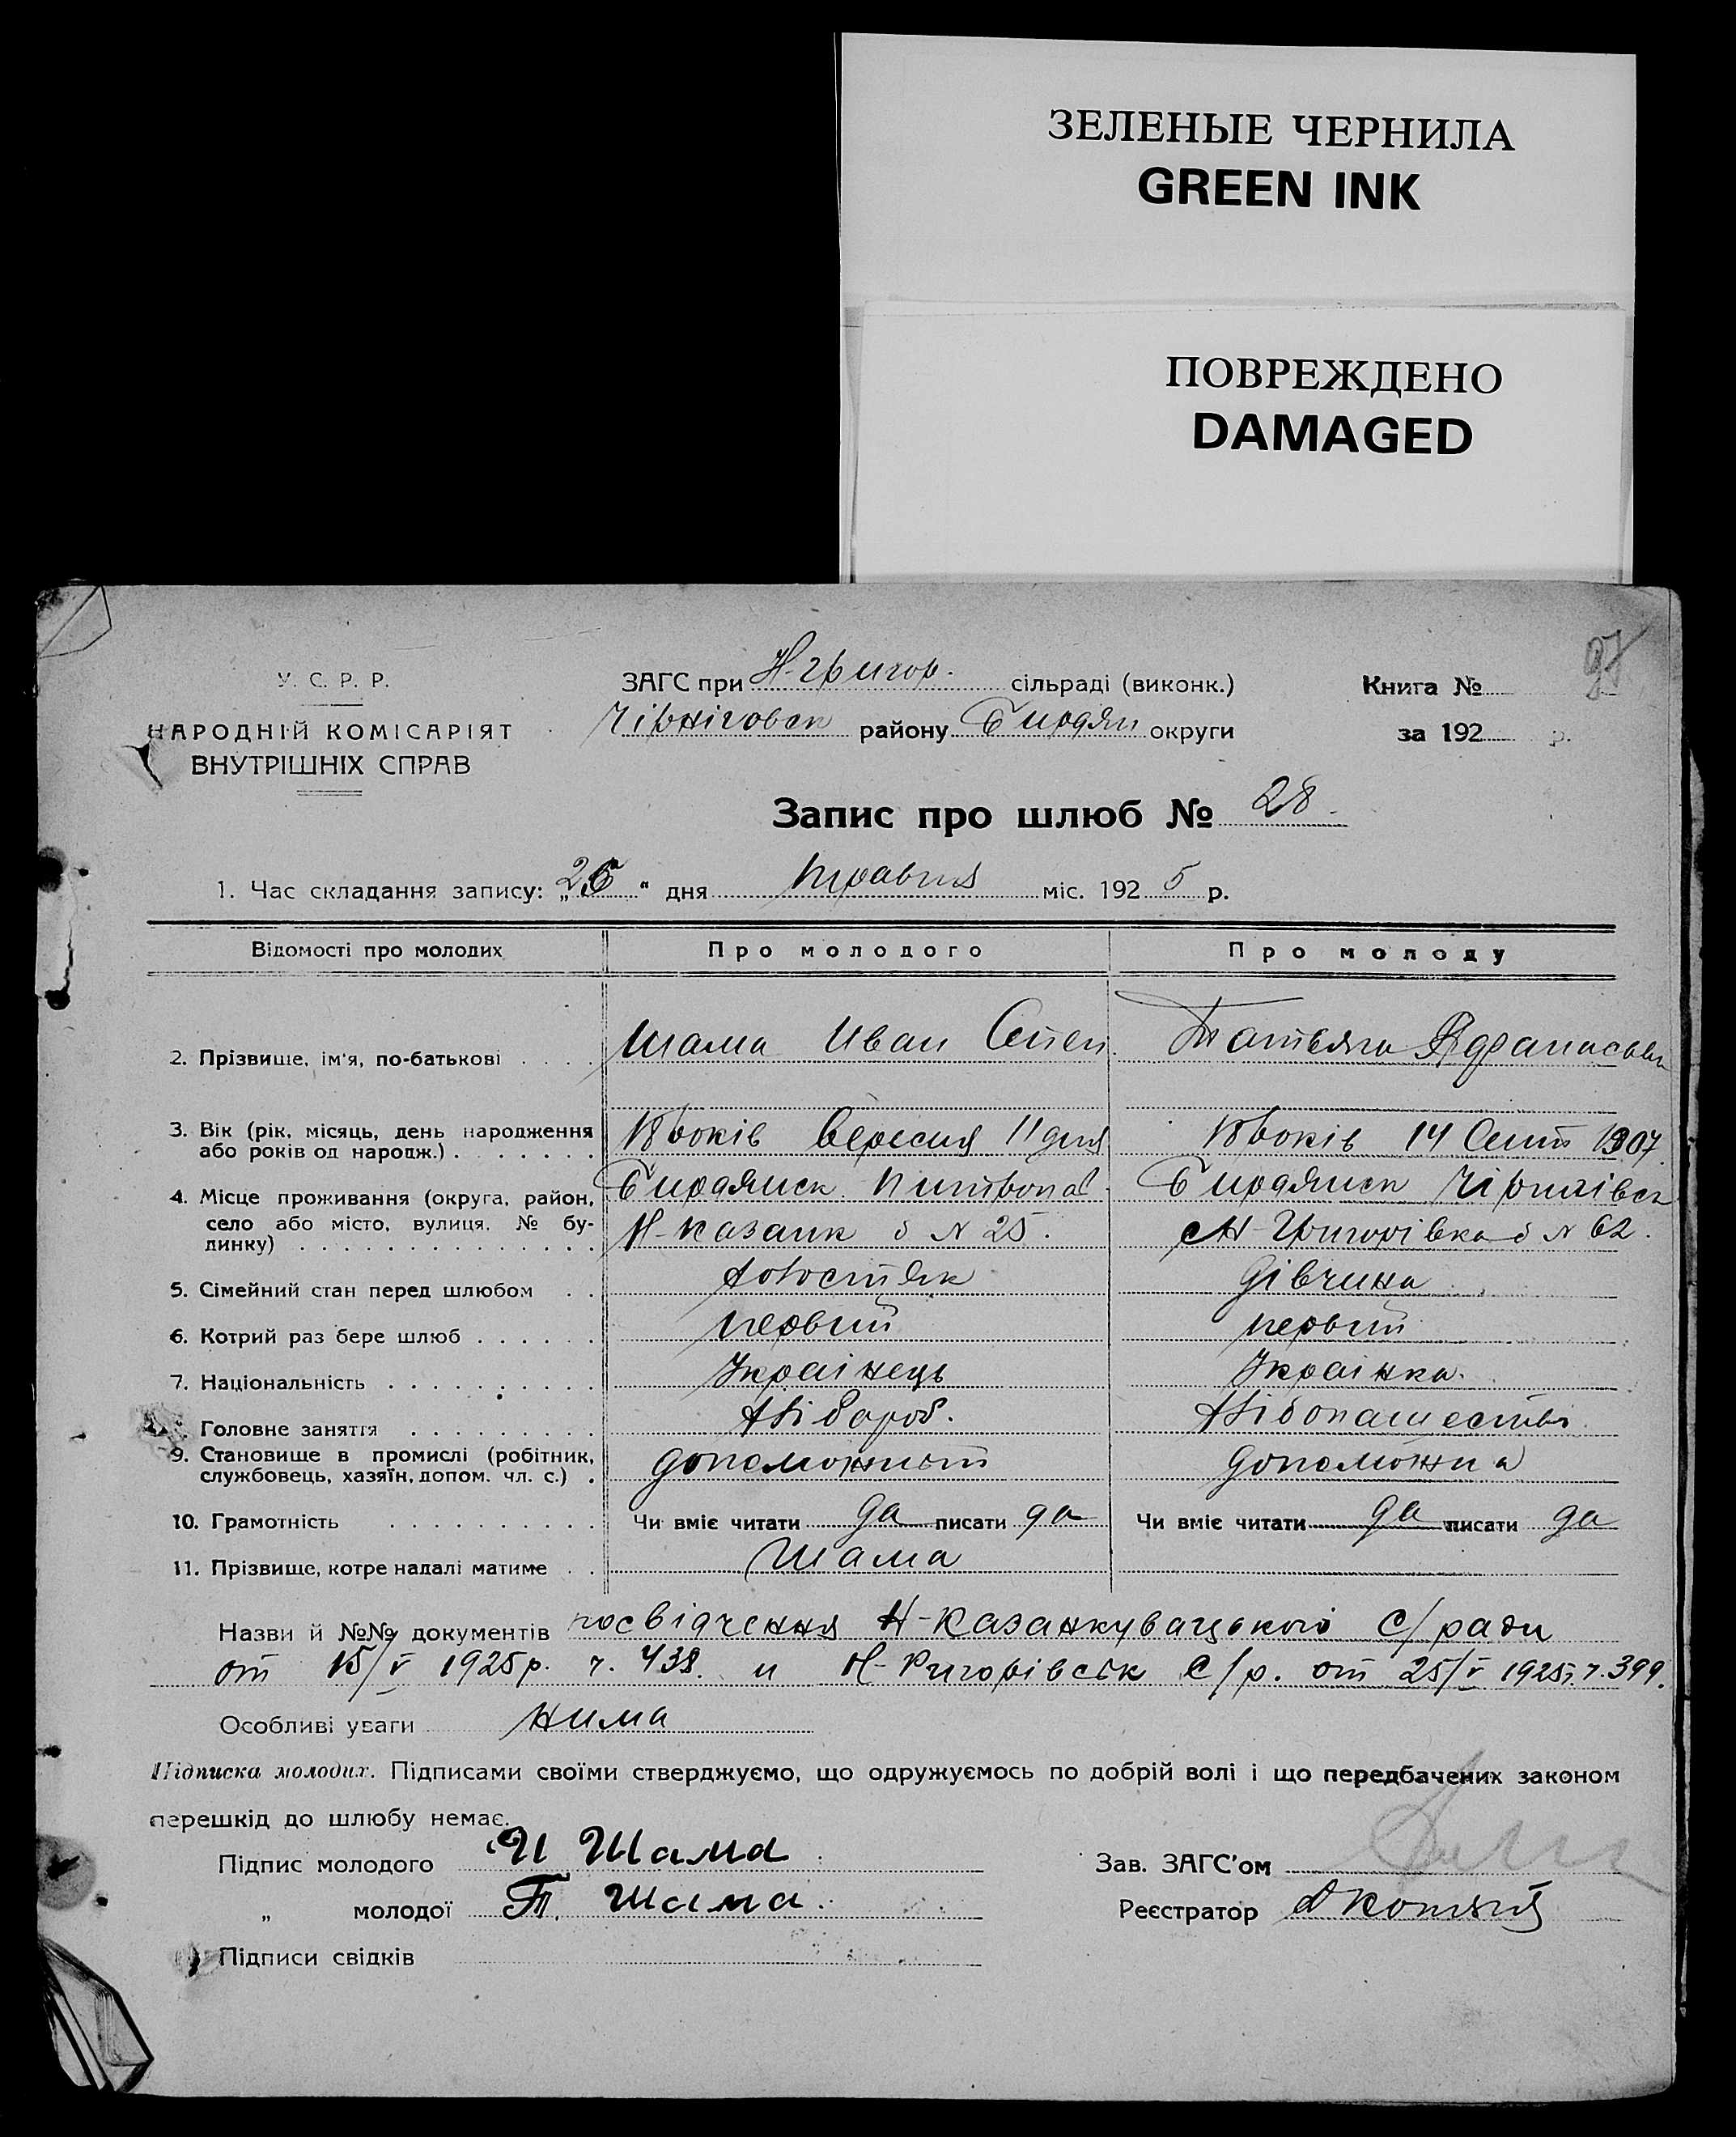 ЗЕЛЕНЫЕ ЧЕРНИЛА
GREEN INK
ПОВРЕЖДЕНО
DAMAGED
97
У. С. Р. Р.
НАРОДНІЙ КОМІСАРІЯТ
ВНУТРІШНІХ СПРАВ
ЗАГС при Н-григор. сільраді (виконк.)
Чірніговск району Бирдян округи
Книга №
за 192 р.
Запис про шлюб № 28
1. Час складання запису: „26" дня травня міс. 1925 р.
Відомості про молодих Про молодого Про молоду
2. Прізвище, ім'я, по-батькові Шама Иван Степ. Татьяна Афанасьев
3. Вік (рік, місяць, день народження або років од народж.) 18 років Вересня 11 дня 18 років 14 Сент 1907
4. Місце проживання (округа, район, село або місто, вулиця, № будинку) Бирдянск Н-Казанк д № 25. Бирдянск Чірнигівск Н-Григорівка д № 62.
5. Сімейний стан перед шлюбом дівчина
6. Котрий раз бере шлюб первий первий
7. Національність Украінець Украінка.
Головне заняття Хлібороб. Хлібопашество
9. Становище в промислі (робітник, службовець, хазяїн, допом. чл. с.) допоможний допоможна
10. Грамотність Чи вміє читати да писати да Чи вміє читати да писати да
11. Прізвище, котре надалі матиме Шама
Назви й №№ документів посвідчення Н-Казанкувацького С/ради
от 15/V 1925р. ч. 438. и Н-Григорівск С/р. от 25/V 1925р. ч. 399.
Особливі уваги нима
Підписка молодих. Підписами своїми стверджуємо, що одружуємось по добрій волі і що передбачених законом
перешкід до шлюбу немає.
Підпис молодого И Шама
Зав. ЗАГС'ом
„ молодої Т. Шама.
Реєстратор
Підписи свідків